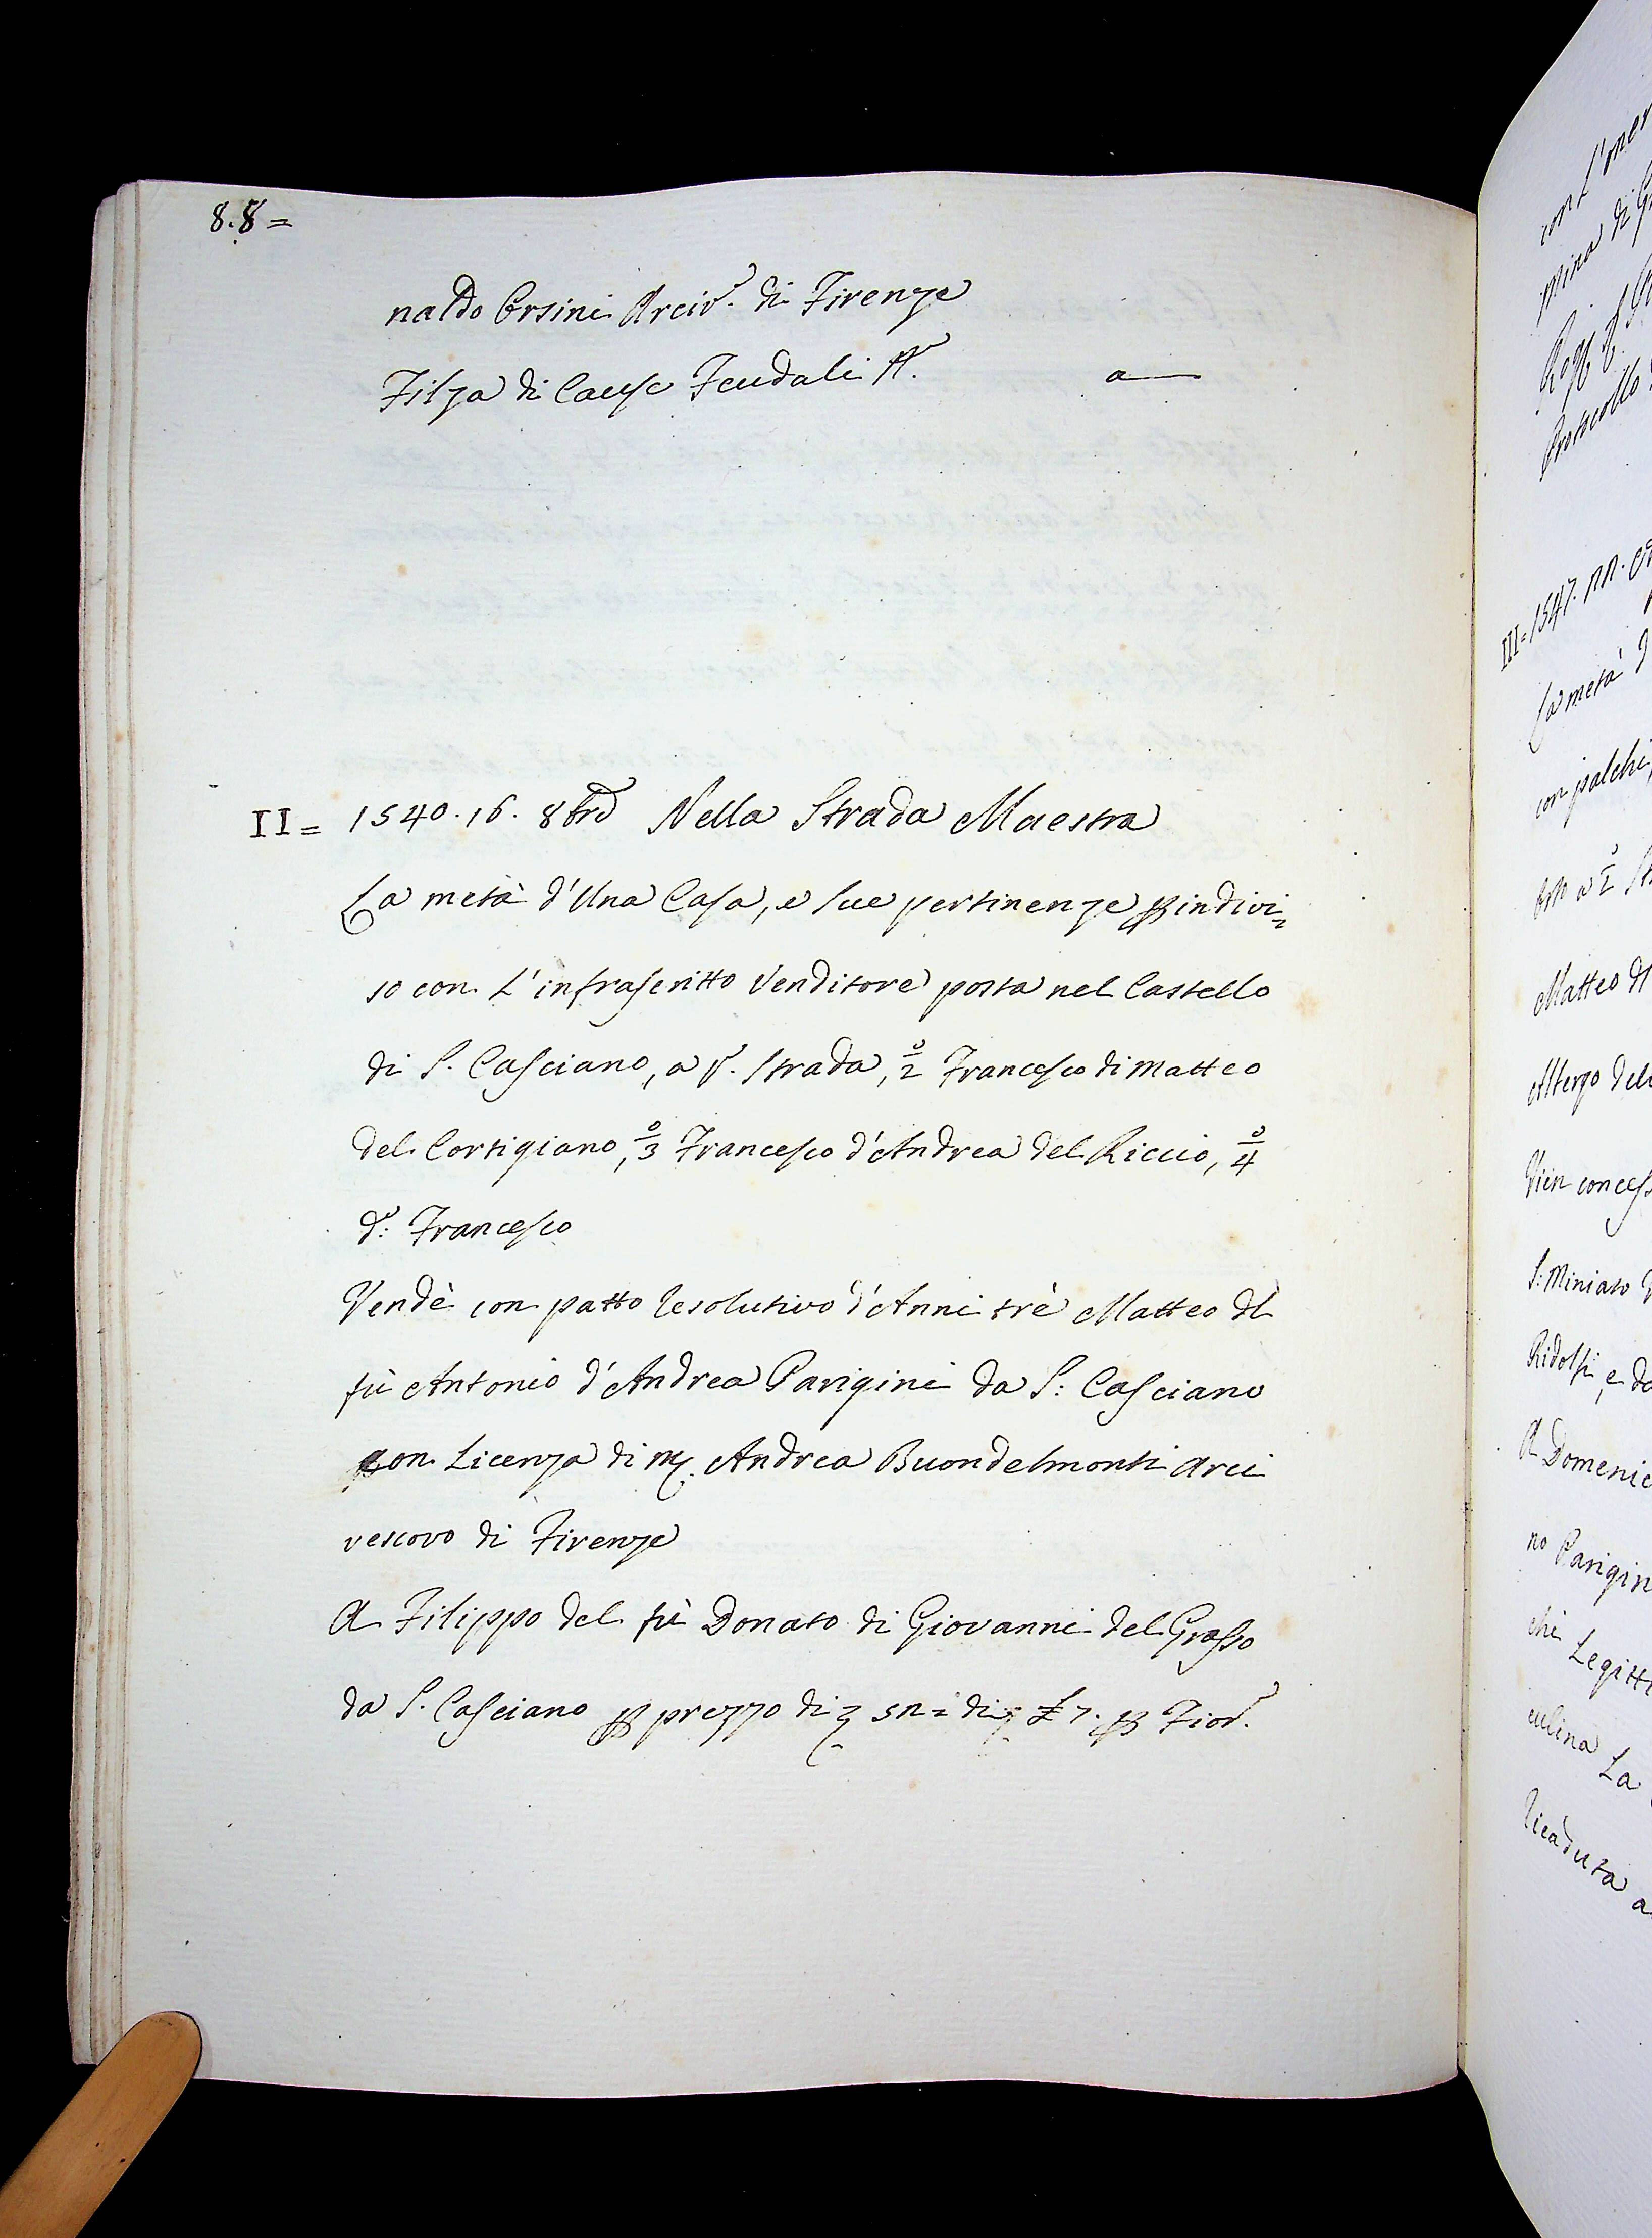 8.8=
naldo Orsini Arciv.º di Firenze
Filza di Cause Feudali N.º a
II= 1540. 16. 8brê Nella Strada Maestra
La metà d'Una Casa, e sue pertinenze p indivi=
so con L'infrascritto Venditore posta nel Castello
di S. Casciano, a p.º Strada, 2º Francesco di Matteo
del Cortigiano, 3º Francesco d'Andrea del Riccio, 4º
d.º Francesco
Vendè con patto resolutivo d'Anni trè Matteo dl
fù Antonio d'Andrea Parigini da S: Casciano
con Licenza di M. Andrea Buondelmonti Arci
vescovo di Firenze
A Filippo del fù Donato di Giovanni del Grasso
da S. Casciano p prezzo di 52= di £ 7. p Fior.º
con l'oner
mina di
Rog
Protocollo
III= 1547.
La metà
con palchi
Matteo dl
Albergo del
Vien concess
S: Miniato
Ridolfi, e da
A Domenic
no Parigin
chi Legitti
culina La
ricaduta a